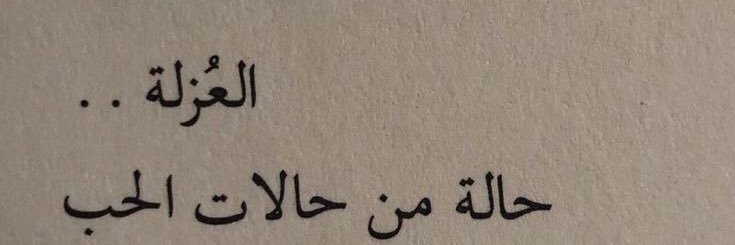 العُزلة . .
حالة من حالات الحب